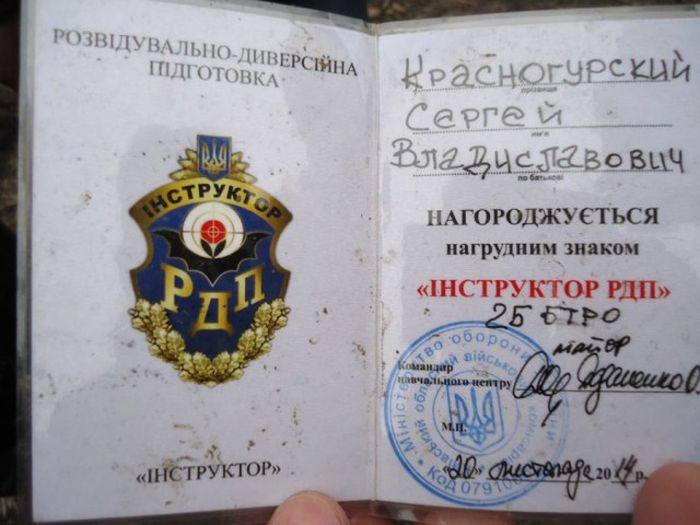 РОЗВІДУВАЛЬНО-ДИВЕРСІЙНА
ПІДГОТОВКА
ІНСТРУКТОР
РДП
«ІНСТРУКТОР»
Красногурский
прізвище
Сєргєй
ім'я
Владиславович
по батькові
НАГОРОДЖУЄТЬСЯ
нагрудним знаком
«ІНСТРУКТОР РДП»
25 БТРО
майор
Командир
навчального центру
М.П.
Міністерство оборони
Код 07910
«20» листопада 2014 р.